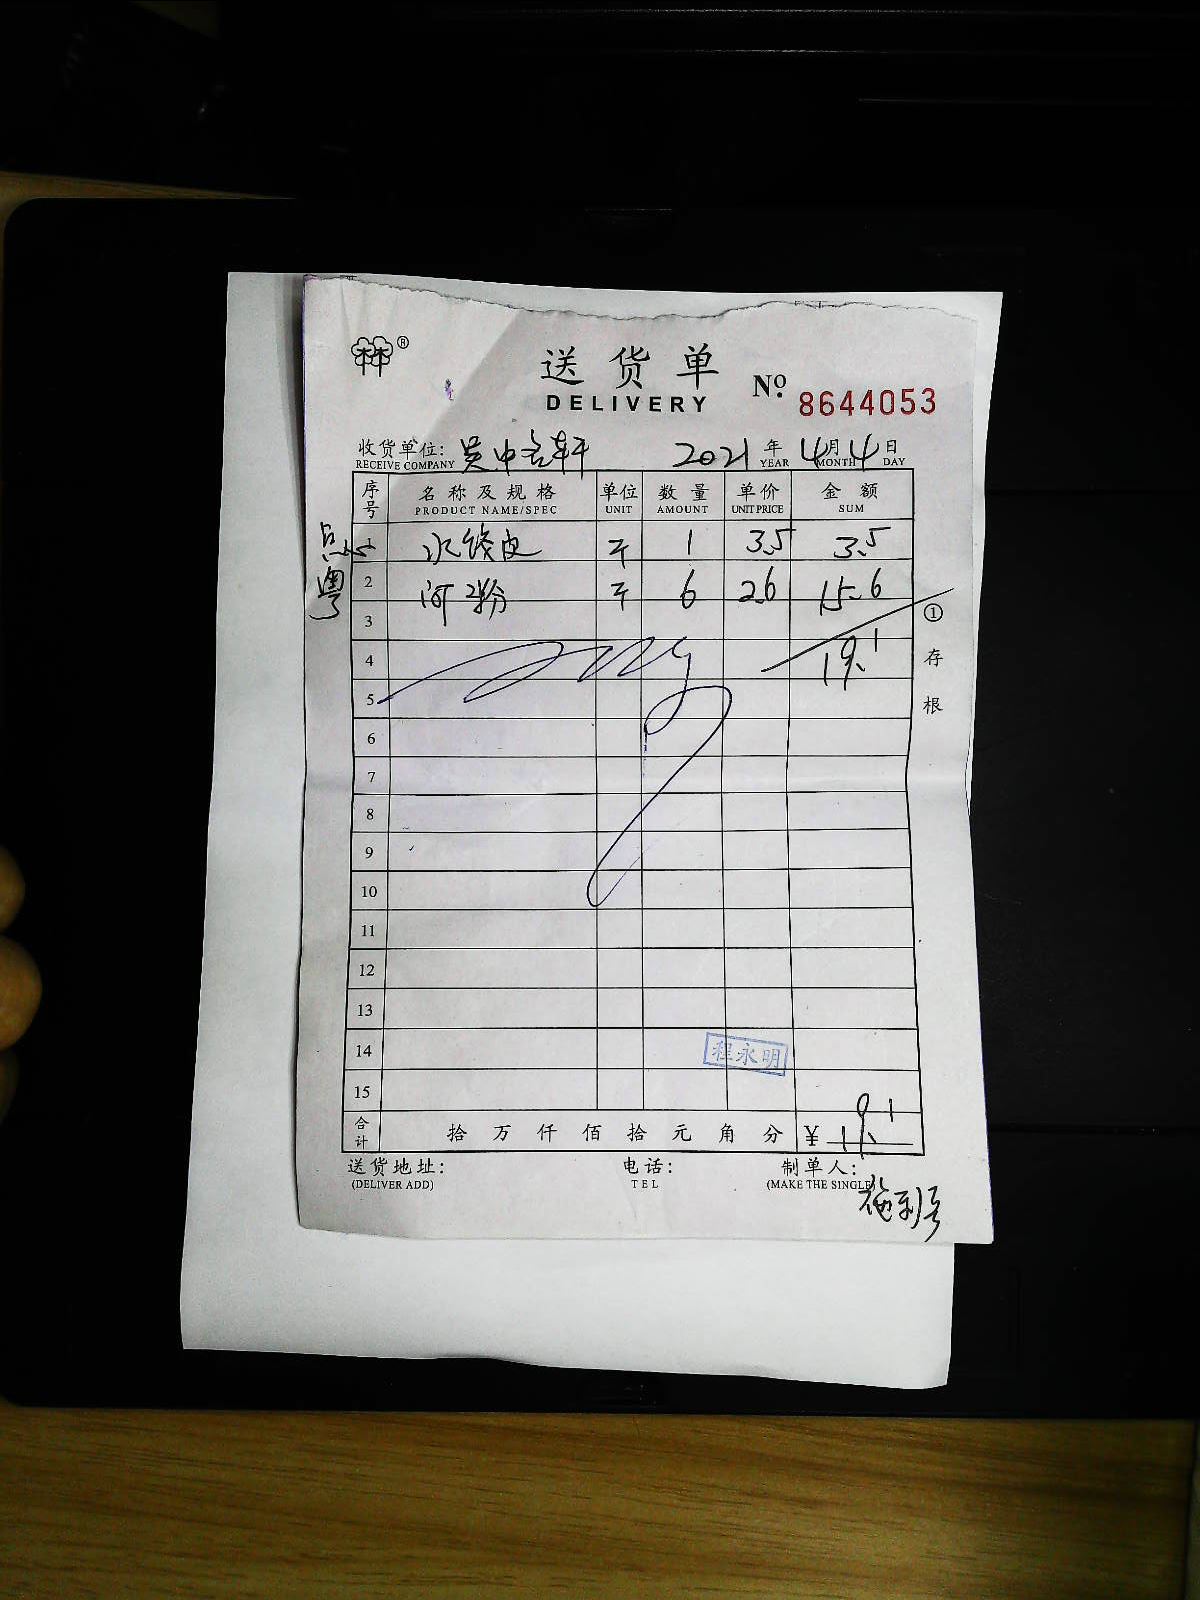 林®
送货单
DELIVERY
№ 8644053
收货单位: 吴中名轩 2021 年 4 月 4 日
RECEIVE COMPANY YEAR MONTH DAY
序号 名称及规格 单位 数量 单价 金额
PRODUCT NAME/SPEC UNIT AMOUNT UNIT PRICE SUM
点
粤
1 水饺皮 斤 1 3.5 3.5
2 河粉 斤 6 2.6 15.6
3
4 19.1
5
6
7
8
9
10
11
12
13
14
15
①存根
程永明
合计 拾 万 仟 佰 拾 元 角 分 ¥ 19.1
送货地址: 电话: 制单人:
(DELIVER ADD) TEL (MAKE THE SINGLE)